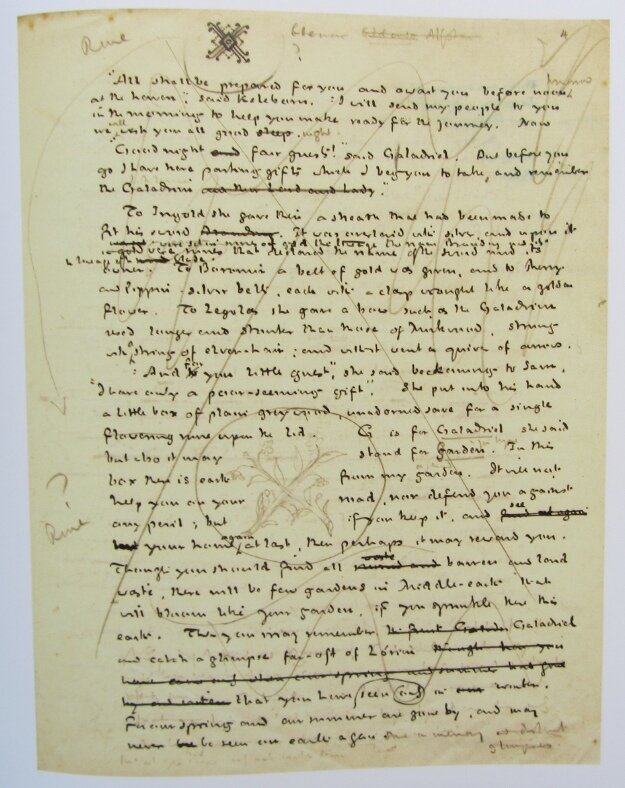 Rune
Elenor
?
4
"All shall be prepared for you and await you before noon
at the haven", said Keleborn. "I will send my people to you
in the morning to help you make ready for the journey. Now
we will wish you all good sleep. night
"Good night and fair guests!" said Galadriel. But before you
go I have here parting gifts which I beg you to take, and remember
the Galadrim and their Lord and Lady."
To Ingold she gave a sheath that had been made to
fit his sword Branding. It was overlaid with silver, and upon it
that declared the name of the sword and its
owner. To Boromir a belt of gold was given, and to Merry
and Pippin silver belts, each with a clasp wrought like a golden
flower. To Legolas she gave a bow such as the Galadrim
used longer and stouter than those of Mirkwood, strung
with string of elven-hair; and with it went a quiver of arrows.
"And for you little guest", she said beckoning to Sam,
"I have only a poor-seeming gift". She put into his hand
a little box of plain grey wood, unadorned save for a single
flowering rune upon the lid. G is for Galadriel she said
but also it may stand for garden. In this
box there is earth from my garden. It will not
help you on your road, nor defend you against
any peril; but if you keep it, and see
your home again at last, then perhaps it may reward you.
Though you should find all waste barren and land
waste, there will be few gardens in Middle-earth that
will bloom like your garden, if you sprinkle there this
earth. Then you may remember Galadriel
and catch a glimpse far-off of Lórien
that you have seen only in our winter.
For our spring and our summer are gone by, and may
never be seen on earth again save a memory
glimpses
?
Rune